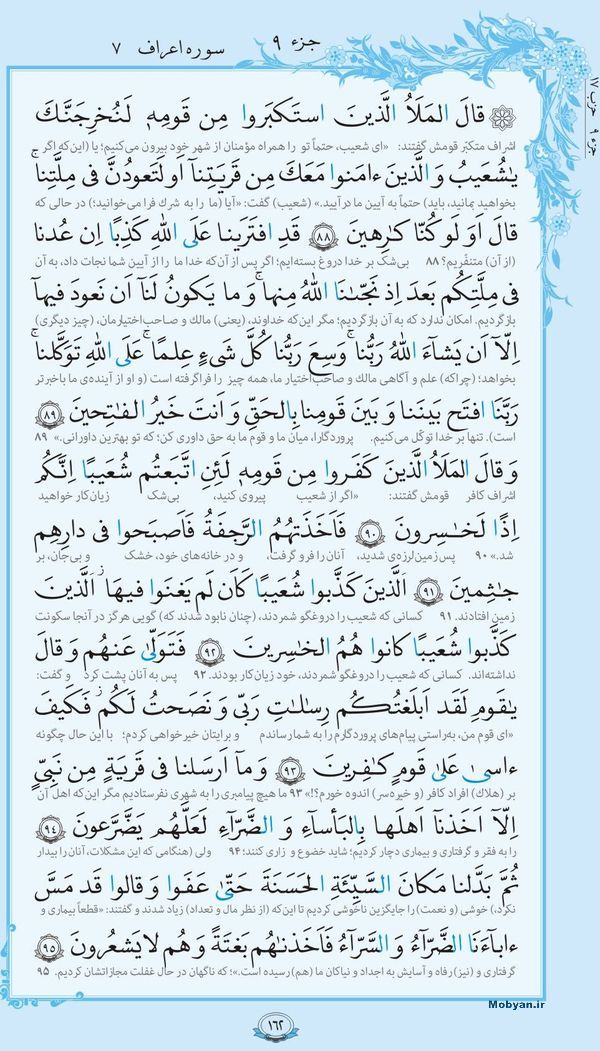 جزء ۹
سوره اعراف ۷
حزب ۱۷
جزء ۹
قالَ المَلَأُ الَّذينَ استَكبَروا مِن قَومِهِ لَنُخرِجَنَّكَ
اشراف متکبّر قومش گفتند: «ای شعیب، حتماً تو را همراه مؤمنان از شهر خود بیرون می‌کنیم؛ یا (این‌که اگر
يٰشُعَيبُ وَ الَّذينَ ءامَنوا مَعَكَ مِن قَريَتِنا اَو لَتَعودُنَّ فى مِلَّتِنا
بخواهید بمانید، باید) حتماً به آیین ما درآیید.» (شعیب) گفت: «آیا (ما را به شرک فرا می‌خوانید؛) در حالی که
قالَ اَوَ لَو كُنّا كٰرِهينَ ﴿۸۸﴾ قَدِ افتَرَينا عَلَى اللّٰهِ كَذِبًا اِن عُدنا
(از آن) متنفّریم؟ ۸۸ بی‌شک بر خدا دروغ بسته‌ایم؛ اگر پس از آن‌که خدا ما را از آیین شما نجات داد، به آن
فى مِلَّتِكُم بَعدَ اِذ نَجّىٰنَا اللّٰهُ مِنها ۚ وَ ما يَكونُ لَنآ اَن نَعودَ فيهآ
بازگردیم. امکان ندارد که به آن بازگردیم؛ مگر این‌که خداوند، (یعنی) مالک و صاحب‌اختیارمان، (چیز دیگری)
اِلّآ اَن يَشآءَ اللّٰهُ رَبُّنا ۚ وَسِعَ رَبُّنا كُلَّ شَىءٍ عِلمًا ۚ عَلَى اللّٰهِ تَوَكَّلنا ۚ
بخواهد؛ (چراکه) علم و آگاهی مالک و صاحب‌اختیار ما، همه چیز را فراگرفته است (و او از آینده‌ی ما باخبرتر
رَبَّنَا افتَح بَينَنا وَ بَينَ قَومِنا بِالحَقِّ وَ اَنتَ خَيرُ الفٰتِحينَ ﴿۸۹﴾
است). تنها بر خدا توکّل می‌کنیم. پروردگارا، میان ما و قوم ما به حق داوری کن؛ که تو بهترین داورانی.» ۸۹
وَ قالَ المَلَأُ الَّذينَ كَفَروا مِن قَومِهِ لَئِنِ اتَّبَعتُم شُعَيبًا اِنَّكُم
اشراف کافر قومش گفتند: «اگر از شعیب پیروی کنید، بی‌شک زیان‌کار خواهید
اِذًا لَخٰسِرونَ ﴿۹۰﴾ فَاَخَذَتهُمُ الرَّجفَةُ فَاَصبَحوا فى دارِهِم
شد.» ۹۰ پس زمین‌لرزه‌ی شدید، آنان را فرو گرفت، و در خانه‌های خود، خشک و بی‌جان، بر
جٰثِمينَ ﴿۹۱﴾ اَلَّذينَ كَذَّبوا شُعَيبًا كَاَن لَم يَغنَوا فيهَا ۚ اَلَّذينَ
زمین افتادند. ۹۱ کسانی که شعیب را دروغگو شمردند، (چنان نابود شدند که) گویی هرگز در آنجا سکونت
كَذَّبوا شُعَيبًا كانوا هُمُ الخٰسِرينَ ﴿۹۲﴾ فَتَوَلّىٰ عَنهُم وَ قالَ
نداشته‌اند. کسانی که شعیب را دروغگو شمردند، خود زیان‌کار بودند. ۹۲ پس به آنان پشت کرد و گفت:
يٰقَومِ لَقَد اَبلَغتُكُم رِسٰلٰتِ رَبّى وَ نَصَحتُ لَكُم ۖ فَكَيفَ
«ای قوم من، به‌راستی پیام‌های پروردگارم را به شما رساندم و برایتان خیرخواهی کردم؛ با این حال چگونه
ءاسىٰ عَلىٰ قَومٍ كٰفِرينَ ﴿۹۳﴾ وَ مآ اَرسَلنا فى قَريَةٍ مِن نَبِىٍّ
بر (هلاک) افراد کافر (و خیره‌سر) اندوه خورم؟!» ۹۳ ما هیچ پیامبری را به شهری نفرستادیم مگر این‌که اهل آن
اِلّآ اَخَذنآ اَهلَها بِالبَأسآءِ وَ الضَّرّآءِ لَعَلَّهُم يَضَّرَّعونَ ﴿۹۴﴾
را به فقر و گرفتاری و بیماری دچار کردیم؛ شاید خضوع و زاری کنند؛ ۹۴ ولی (هنگامی که این مشکلات، آنان را بیدار
ثُمَّ بَدَّلنا مَكانَ السَّيِّئَةِ الحَسَنَةَ حَتّىٰ عَفَوا وَ قالوا قَد مَسَّ
نکرد،) خوشی (و نعمت) را جایگزین ناخوشی کردیم تا این‌که (از نظر مال و تعداد) زیاد شدند و گفتند: «قطعاً بیماری و
ءابآءَنَا الضَّرّآءُ وَ السَّرّآءُ فَاَخَذنٰهُم بَغتَةً وَ هُم لا يَشعُرونَ ﴿۹۵﴾
گرفتاری و (نیز) رفاه و آسایش به اجداد و نیاکان ما (هم) رسیده است.»؛ که ناگهان در حال غفلت مجازاتشان کردیم. ۹۵
Mobyan.ir
۱۶۲